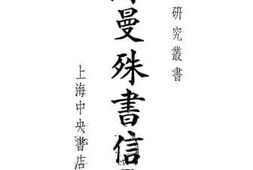 研究叢書
曼殊書信
上海中央書店